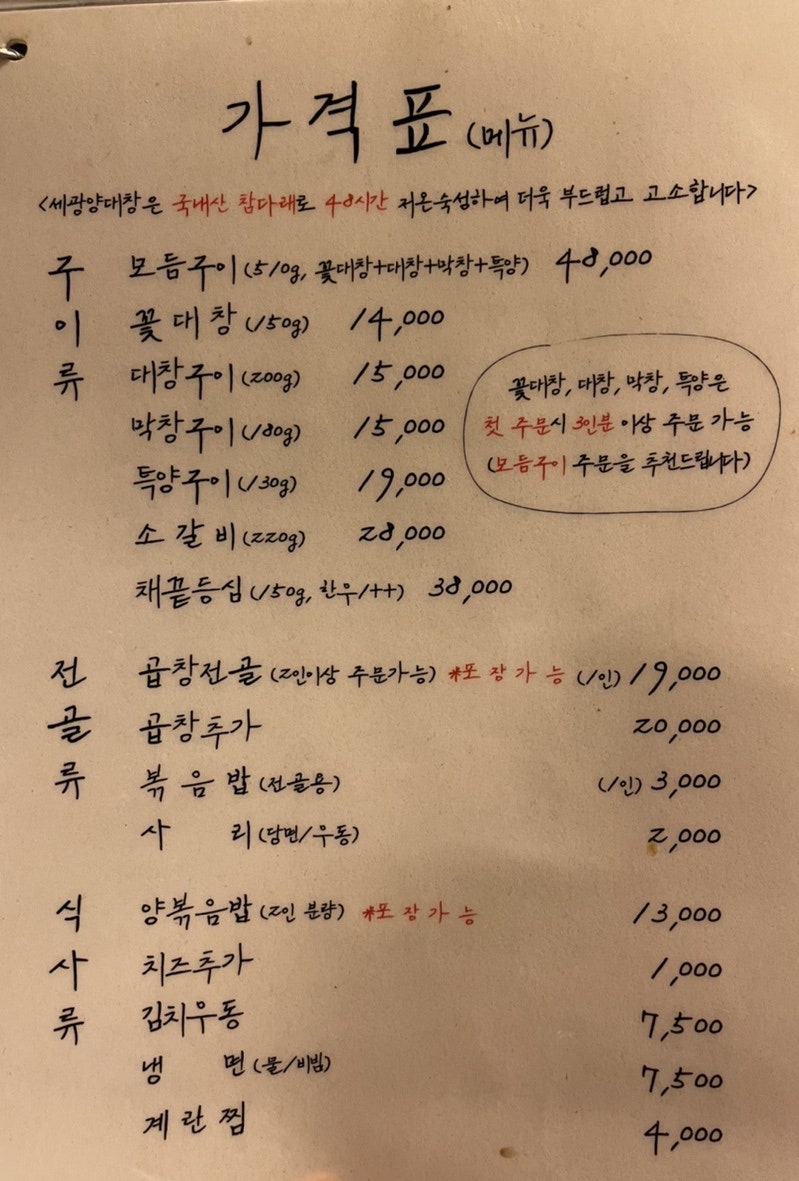 가격표 (메뉴)
<세광양대창은 국내산 참다래로 48시간 저온숙성하여 더욱 부드럽고 고소합니다>
구이류
모듬구이 (510g, 꽃대창+대창+막창+특양) 48,000
꽃대창 (150g) 14,000
대창구이 (200g) 15,000
막창구이 (180g) 15,000
특양구이 (130g) 19,000
소갈비 (220g) 28,000
채끝등심 (150g, 한우1++) 38,000
꽃대창, 대창, 막창, 특양은
첫 주문시 3인분 이상 주문 가능
(모듬구이 주문을 추천드립니다)
전골류
곱창전골 (2인이상 주문가능) *포장가능 (1인) 19,000
곱창추가 20,000
볶음밥 (전골용) (1인) 3,000
사리 (당면/우동) 2,000
식사류
양볶음밥 (2인 분량) *포장가능 13,000
치즈추가 1,000
김치우동 7,500
냉면 (물/비빔) 7,500
계란찜 4,000